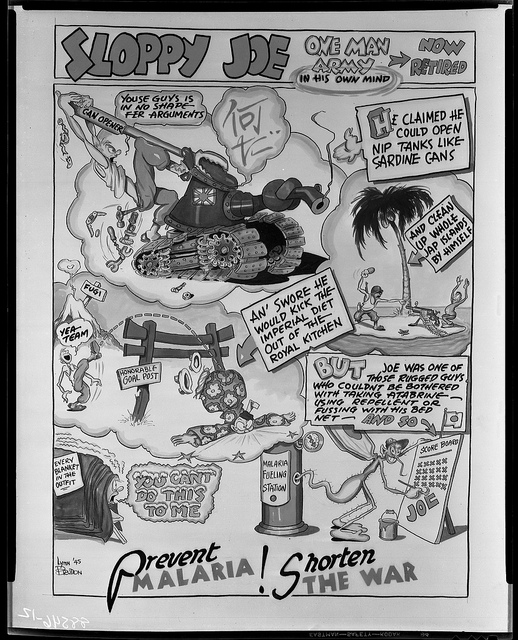 SLOPPY JOE
ONE MAN
ARMY
IN HIS OWN MIND
NOW
RETIRED
YOUSE GUYS IS
IN NO SHAPE
FER ARGUMENTS
CAN OPENER
何
HE CLAIMED HE
COULD OPEN
NIP TANKS LIKE
SARDINE CANS
AND CLEAN
UP WHOLE
JAP ISLANDS
BY HIMSELF
FUGI
YEA
TEAM
HONORABLE
GOAL POST
AN' SWORE HE
WOULD KICK THE
IMPERIAL DIET
OUT OF THE
ROYAL KITCHEN
BUT JOE WAS ONE OF
THOSE RUGGED GUYS
WHO COULDN'T BE BOTHERED
WITH TAKING ATABRINE—
USING REPELLENT OR
FUSSING WITH HIS BED
NET— AND SO
EVERY
BLANKET
IN THE
OUTFIT
YOU CAN'T
DO THIS
TO ME
MALARIA
FUELING
STATION
SCORE BOARD
JOE
'45
Prevent
MALARIA!
Shorten
THE WAR